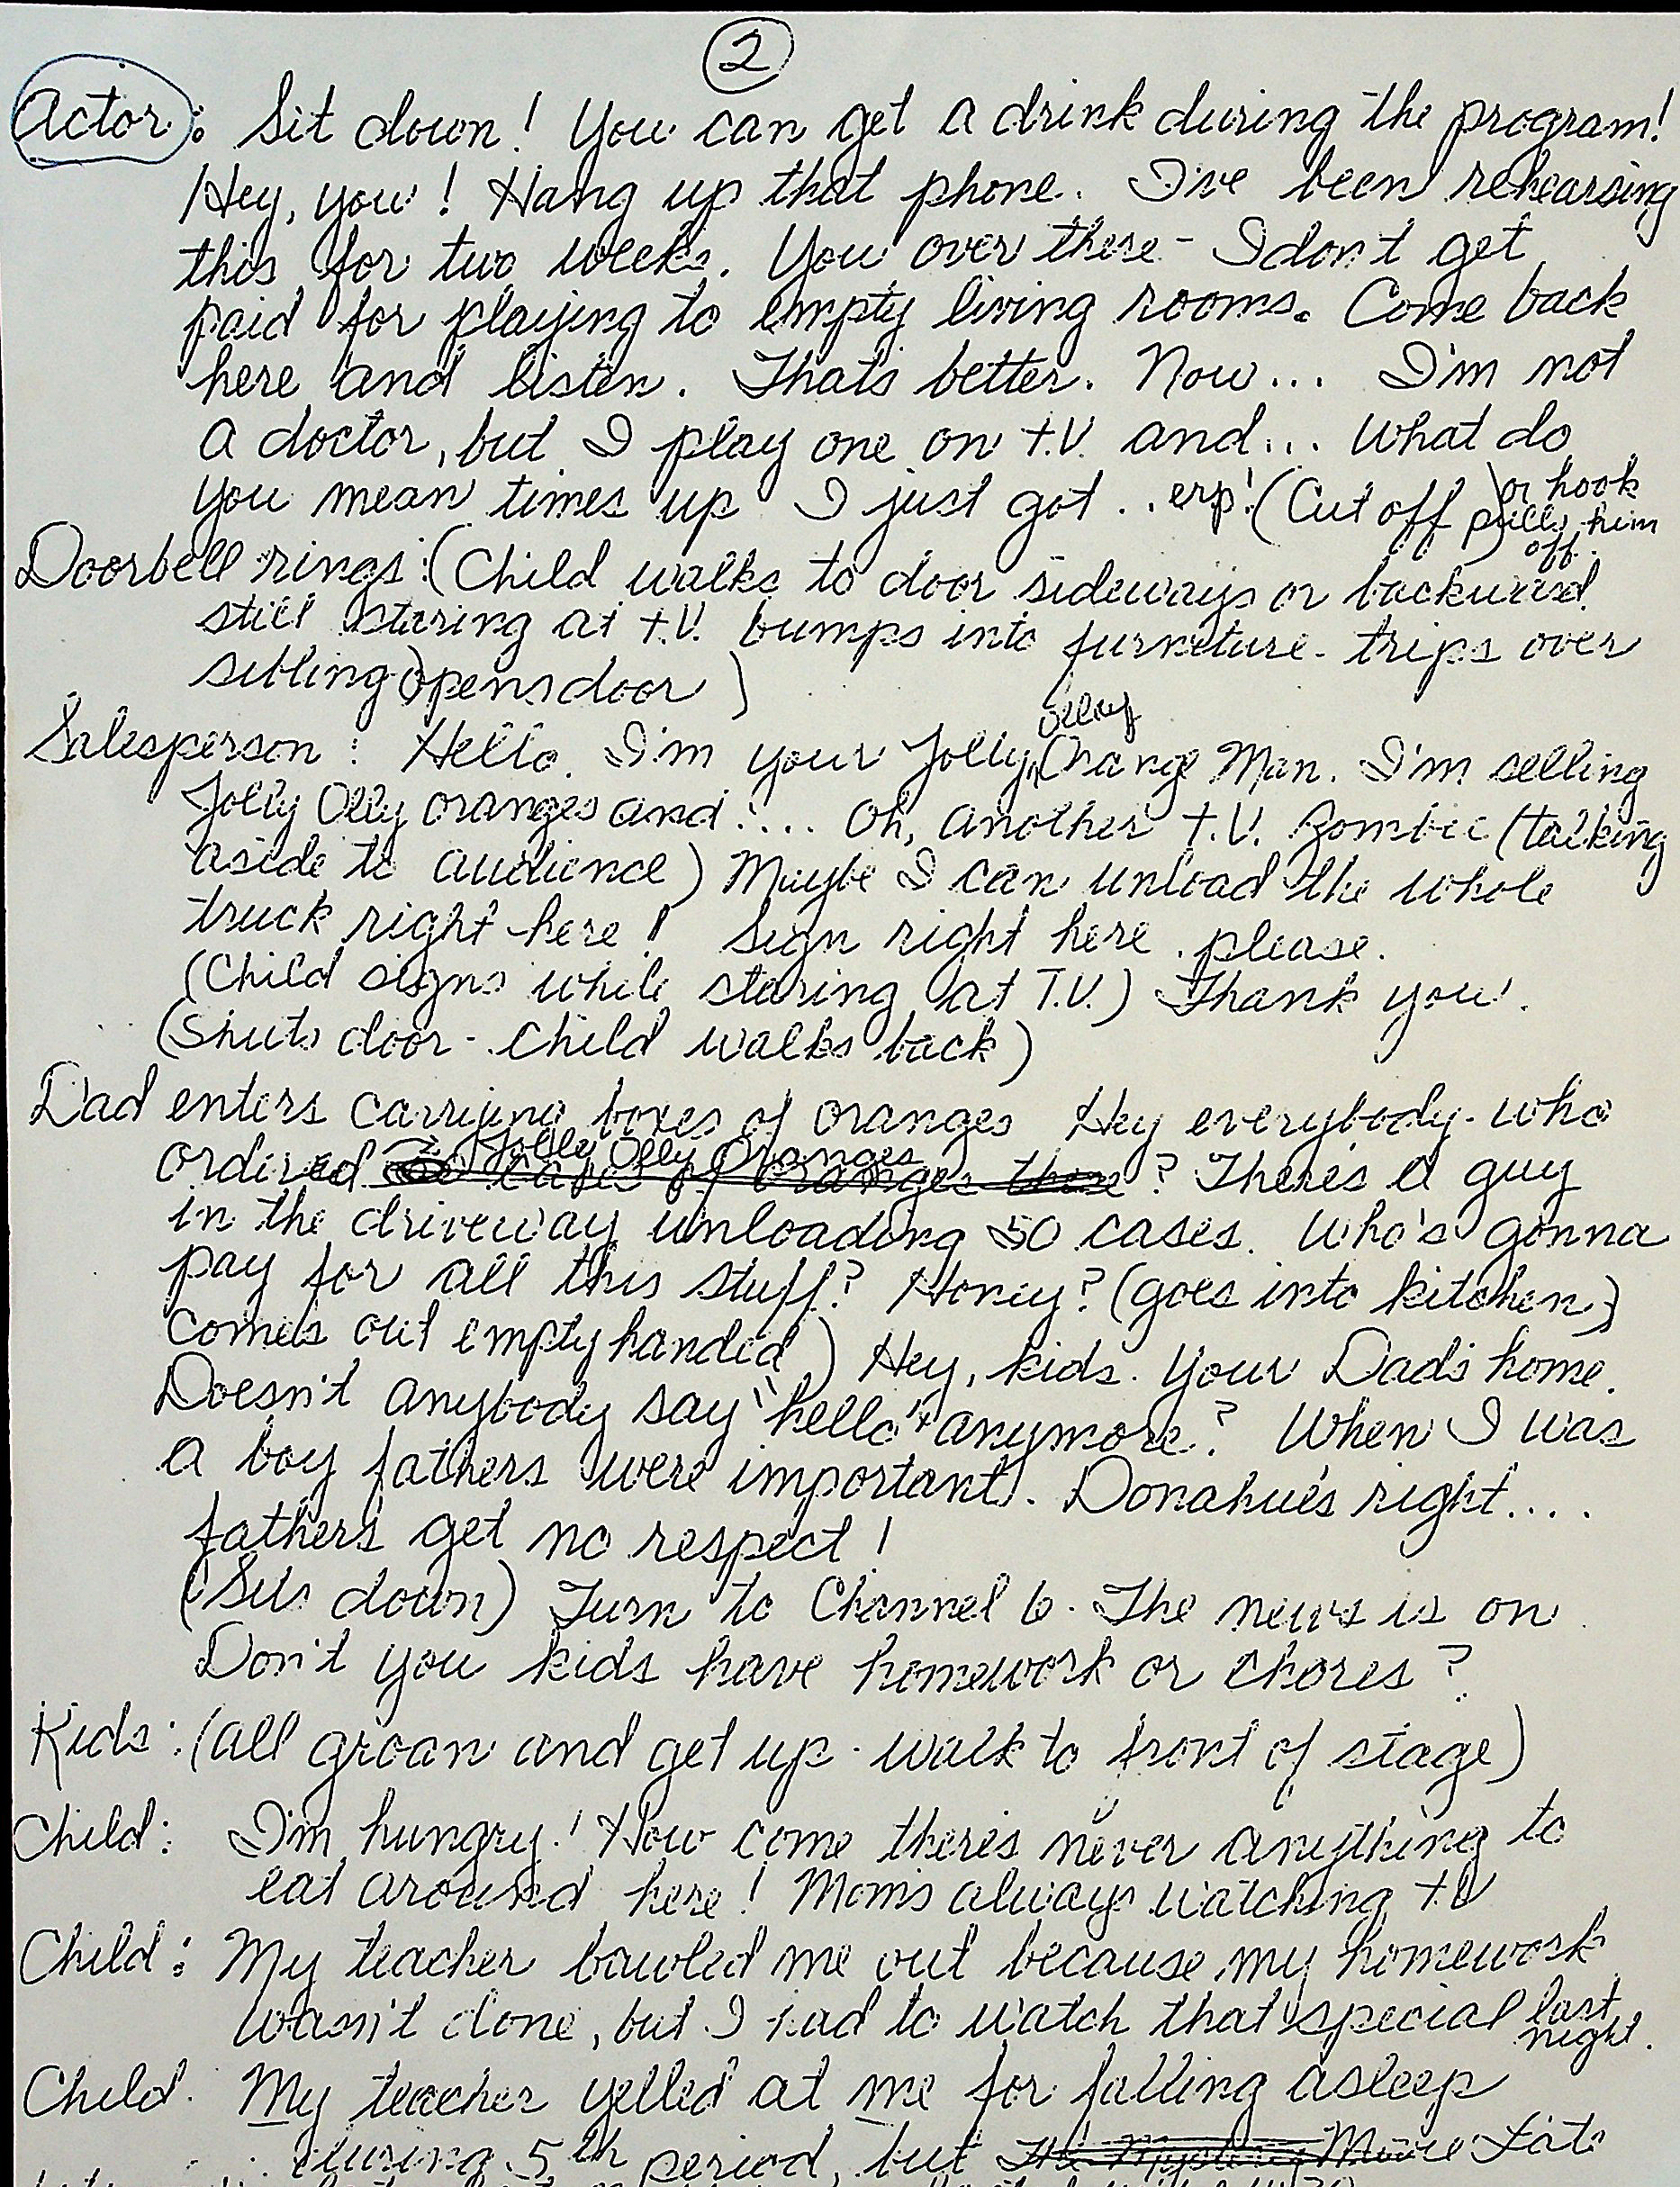 2
Actor: Sit down! You can get a drink during the program!
Hey, you! Hang up that phone. I've been rehearsing
this for two weeks. You over there - I don't get
paid for playing to empty living rooms. Come back
here and listen. Thats better. Now... I'm not
a doctor, but I play one on t.V. and... What do
you mean times up I just got .. erp! (Cut off) or hook
pulls him
off.
Doorbell rings: (Child walks to door sideways or backward
still staring at t.V. bumps into furneture - trips over
sibling opens door)
Salesperson: Hello. I'm your Jolly Olley Orange Man. I'm selling
Jolly Olly oranges and .... Oh, another t.V. Zombie (talking
aside to audience) Maybe I can unload the whole
truck right here! Sign right here please.
(Child signs while staring at T.V.) Thank you.
(Shuts door - Child walks back)
Dad enters carrying boxes of oranges Hey everybody - who
ordered Jolly Olly Oranges ? There's a guy
in the driveway unloading 50 cases. Who's gonna
pay for all this stuff? Honey? (goes into kitchen,
comes out empty handed) Hey, kids. Your Dad's home.
Doesn't anybody say "hello" anymore? When I was
a boy fathers were important. Donahue's right....
fathers get no respect!
(Sits down) Turn to Channel 6. The news is on.
Don't you kids have homework or chores?
Kids: (all groan and get up - walk to front of stage)
Child: I'm hungry! How come there's never anything to
eat around here! Mom's always watching t.V
Child: My teacher bawled me out because my homework
wasn't done, but I had to watch that special last
night.
Child. My teacher yelled at me for falling asleep
during 5th period, but Late